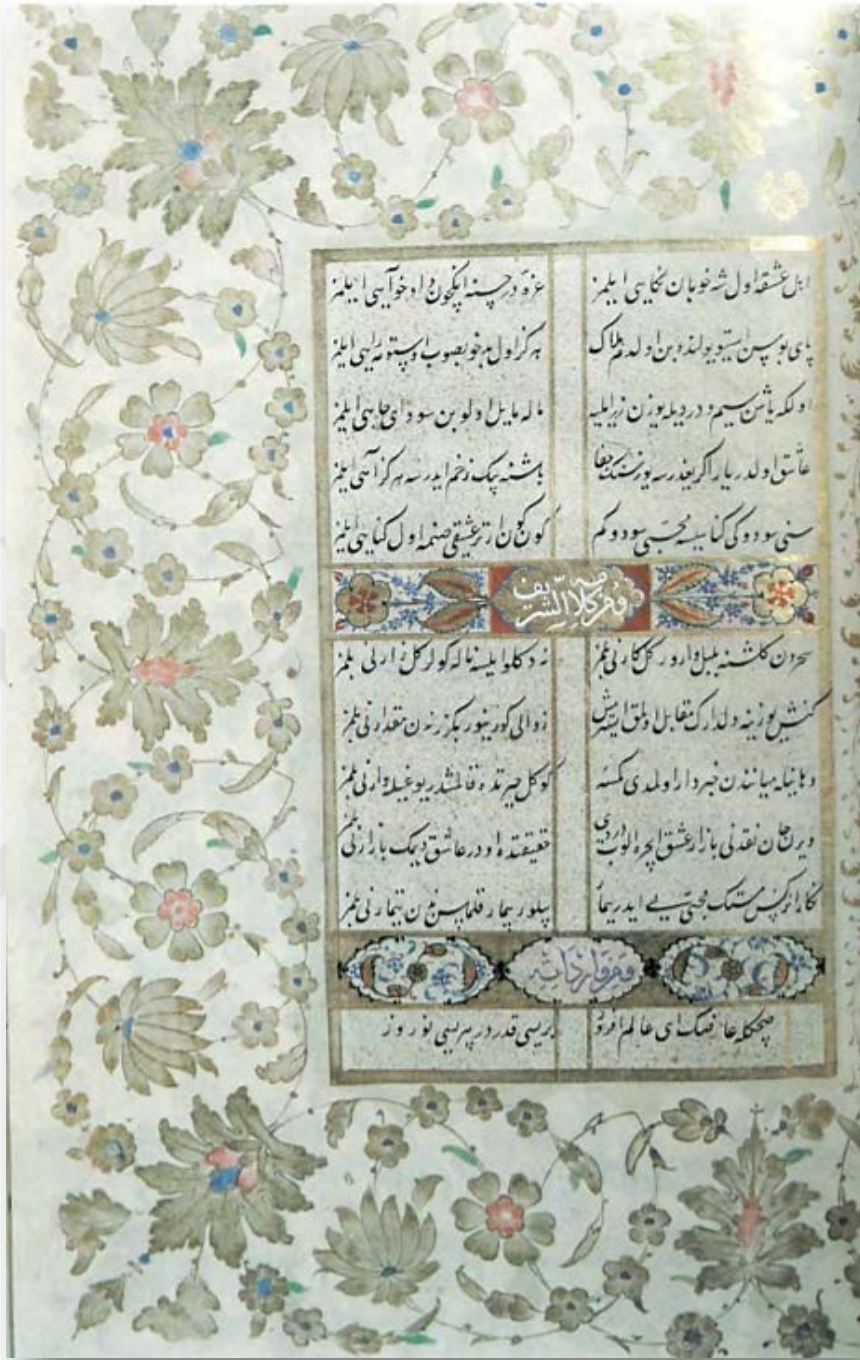 اهل عشقه اول شه خوبان نكاهی ایلمز غره در حسنه انكچون داد خواهی ایلمز
پای بوسن استیو یولنده بن اولدم هلاك هركز اول مه بصوب اوستومه راهی ایلمز
اولكه یاشن سیم و دردیله یوزن زر ایلیه ماله مایل اولوبن سودای جاهی ایلمز
عاشق اولدر یار اكر یغدرسه یوز سنك جفا باشنه بیك زخم ایدرسه هركز آهی ایلمز
سنی سودوكی كناهیسه محبی سودوكم كون كون ارتر عشقی صنمه اول كناهی ایلمز
و من كلامه الشریف
سحردن كلشنه بلبل وارور كل كارنی بلمز نه دكلو ایلسه ناله كولر كل زارنی بلمز
كنش یوزینه دلدارك مقابل اولمق استرمش زوالی كورینور بكزر مقدارنی بلمز
دهانیله میانندن خبردار اولمدی كمسه كوكل حیرتده قالمشدر یوغیله وارنی بلمز
ویرن جان نقدنی بازار عشق ایچره الوب دردی حقیقتده اودر عاشق دیمك بازارنی بلمز
نكارا نركس مستك محبی یی ایدر بیمار بیلور بیمار ندن تیمارنی بلمز
و من وارداته
صچكله عارضك ای عالم افروز بریسی قدر در بریسی نوروز